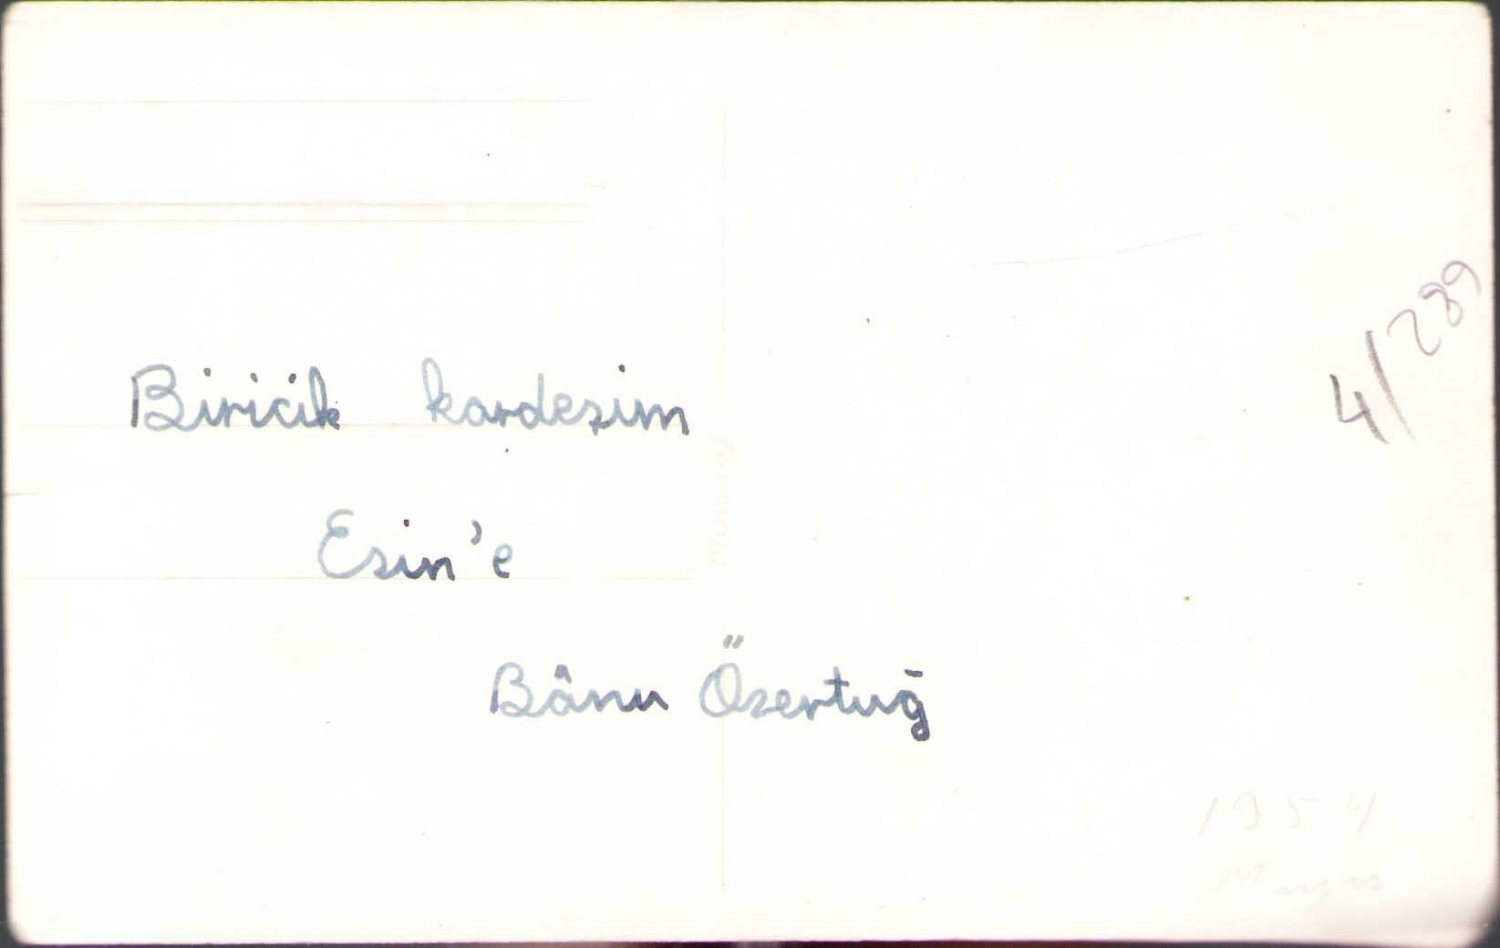 Biricik kardeşim
Esin'e
Bânu Özertuğ
4/289
1954